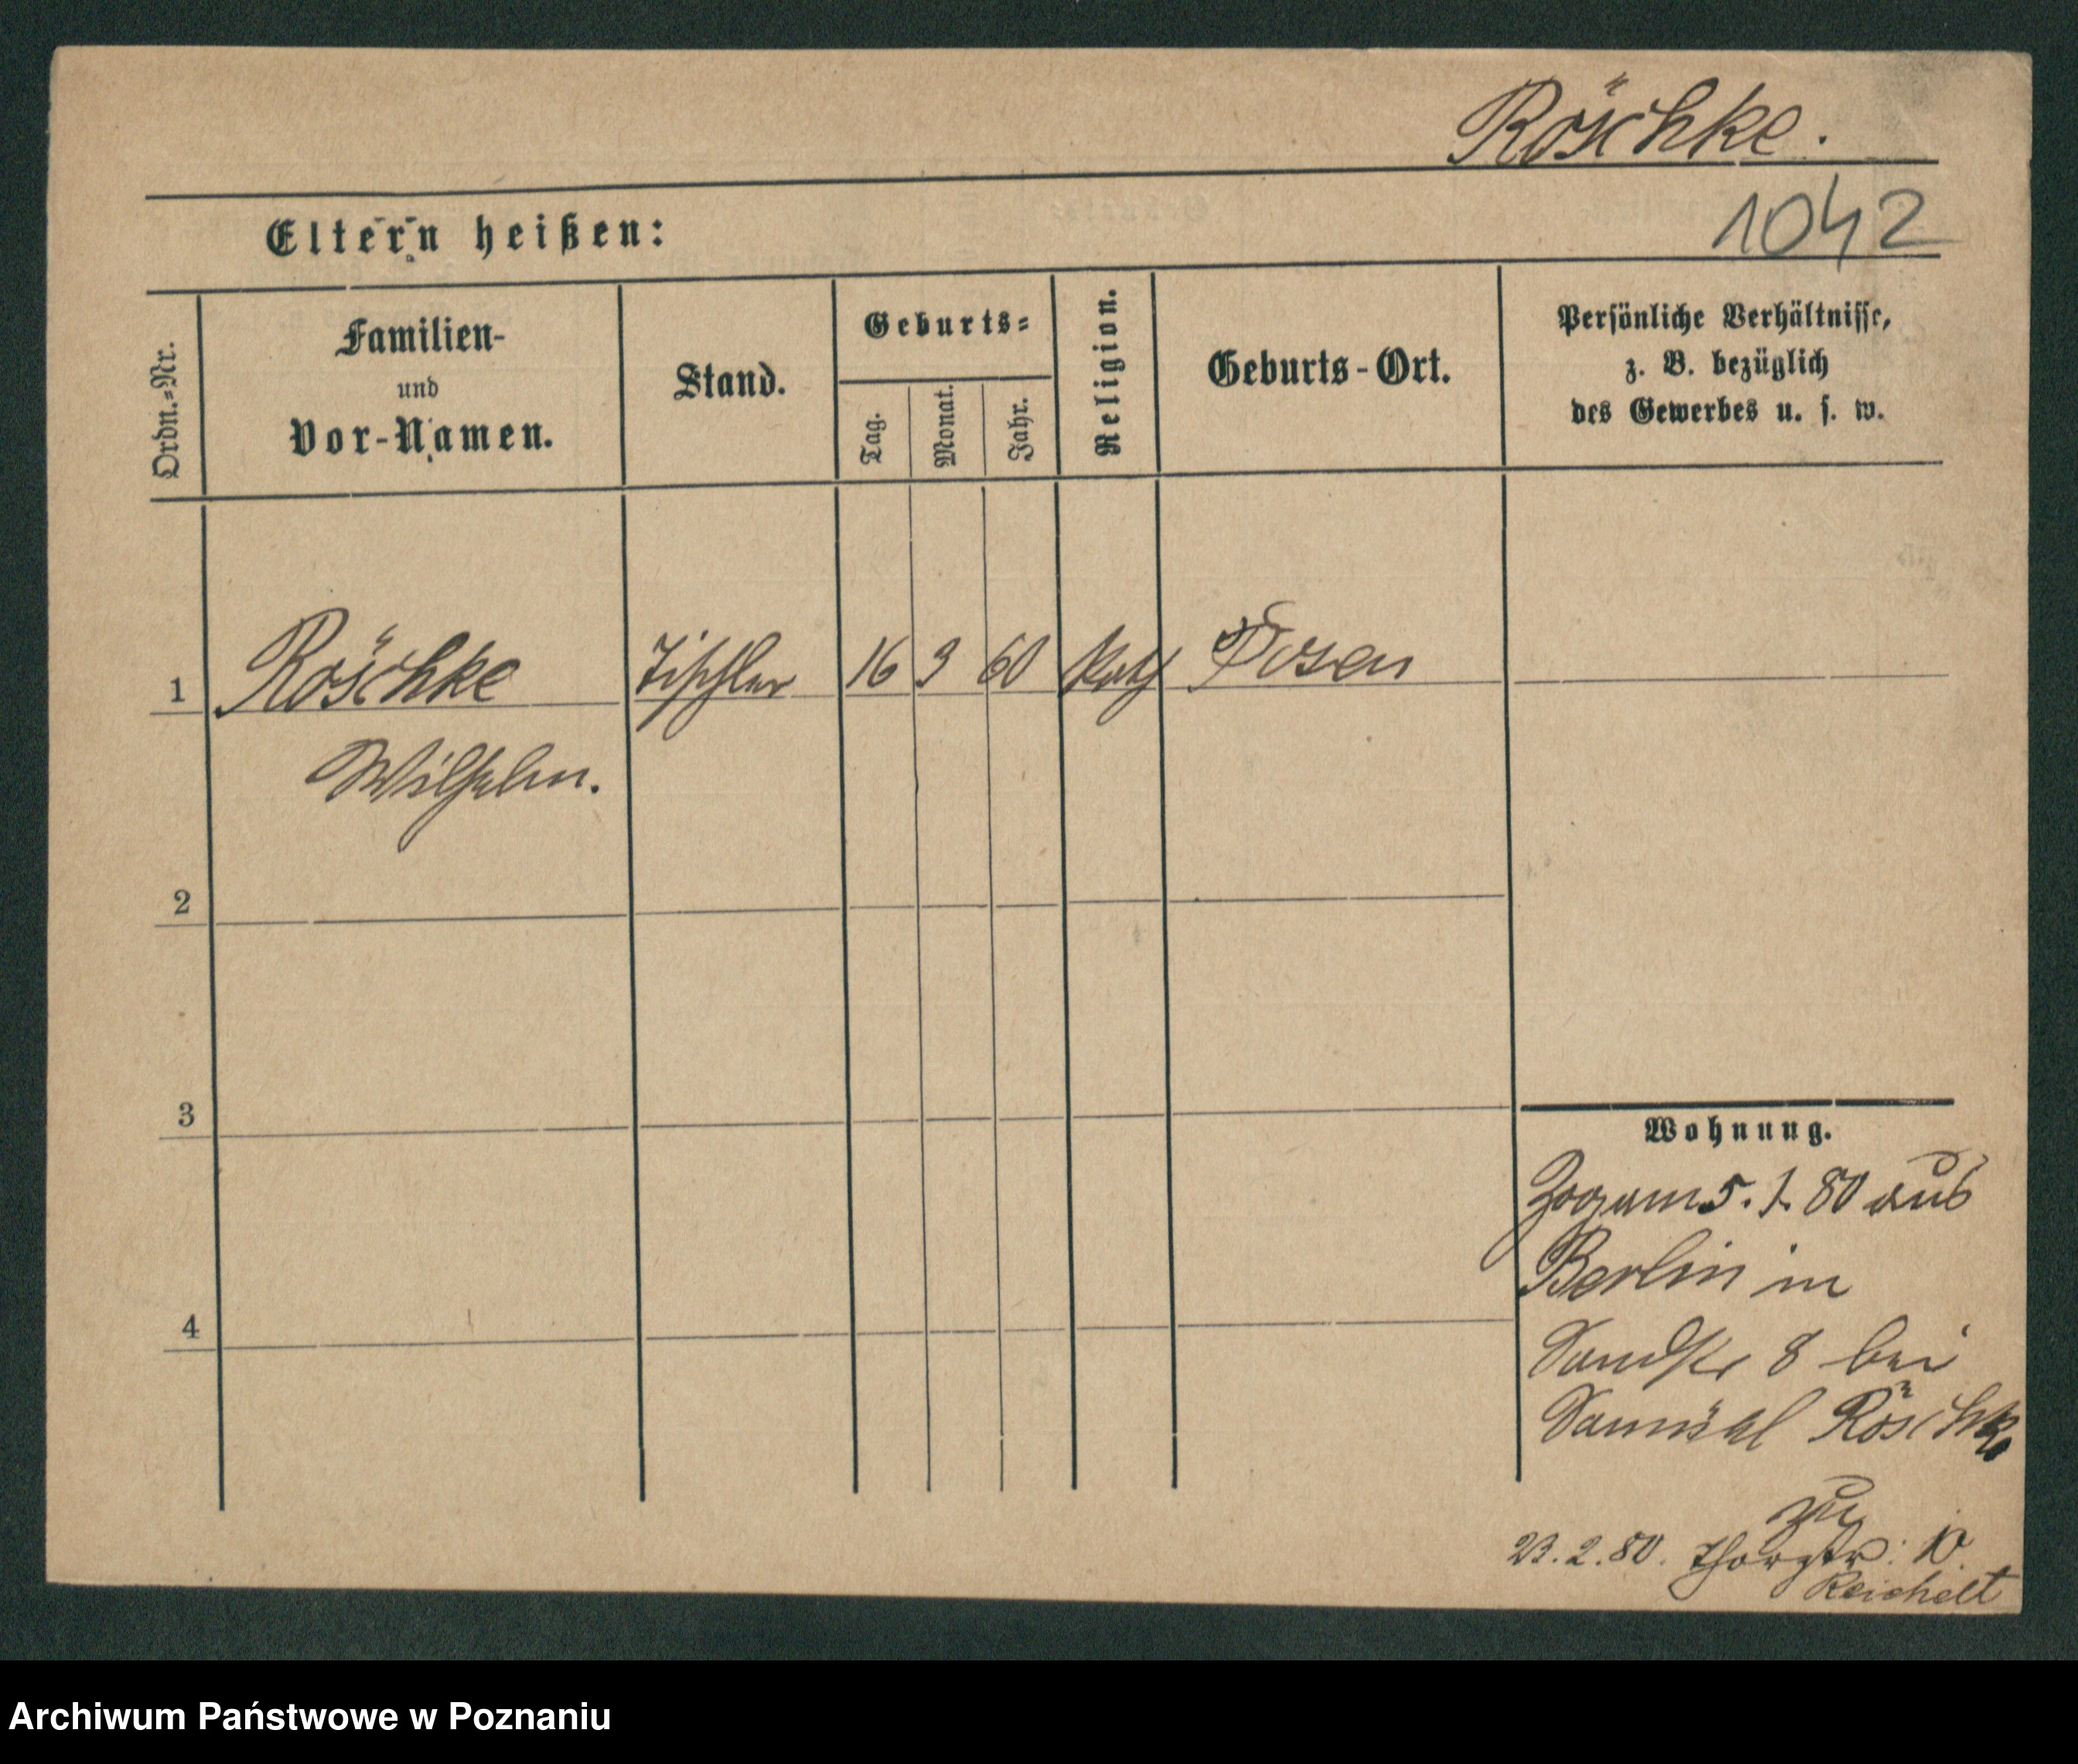 Röschke.
1042
Eltern heißen:
Ordn.-Nr.
Familien-
und
Vor-Namen.
Stand.
Geburts-
Tag.
Monat.
Jahr.
Religion.
Geburts-Ort.
Persönliche Verhältnisse,
z. B. bezüglich
des Gewerbes u. s. w.
1 Röschke Tischler 16 3 60 kath Posen
Wilhelm.
2
3
4
Wohnung.
Zog am 5. 1. 80 aus
Berlin in
Sandstr 8 bei
Samuel Röschke
zu
23. 2. 80. Thorstr: 10.
Reichelt
Archiwum Państwowe w Poznaniu